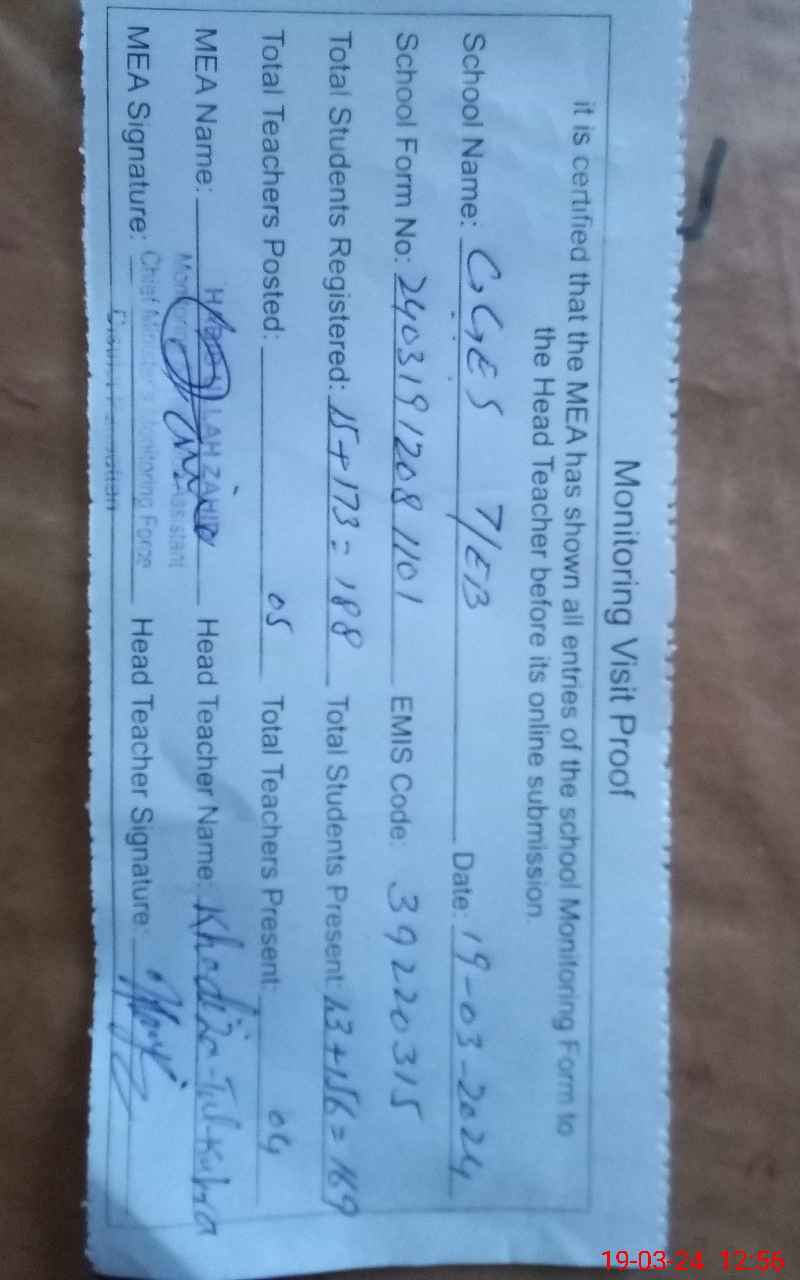 Monitoring Visit Proof
it is certified that the MEA has shown all entries of the school Monitoring Form to
the Head Teacher before its online submission.
School Name: GGES 7/EB Date: 19-03-2024
School Form No: 2403191208 1101 EMIS Code: 39220315
Total Students Registered: 15+173=188 Total Students Present: 13+156=169
Total Teachers Posted: 05 Total Teachers Present: 04
MEA Name: LAH ZAHID Head Teacher Name: Khadija-Tul-Kubra
Monitoring Assistant
MEA Signature: Chief Minister's Monitoring Force Head Teacher Signature:
19-03-24 12:56